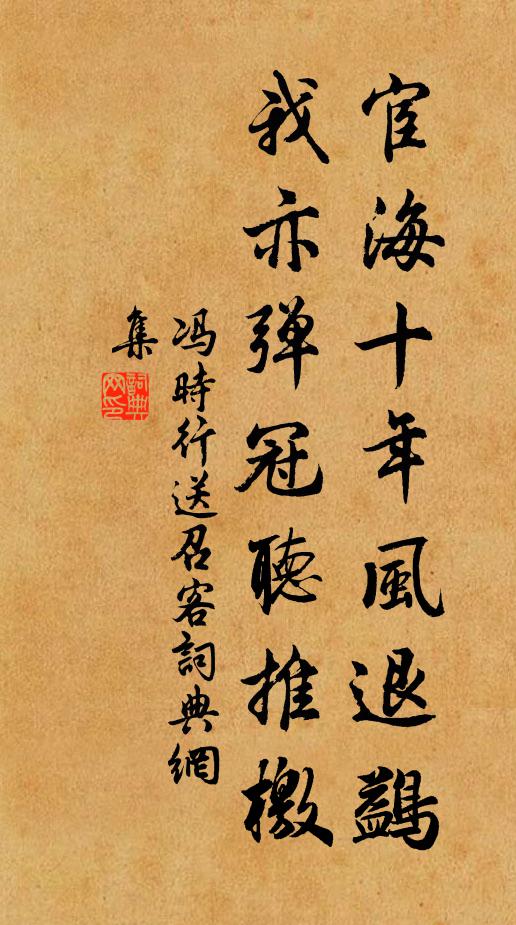 宦海十年風退鷁
我亦彈冠聽推檄
冯時行送召客詞典網
集
詞典网印